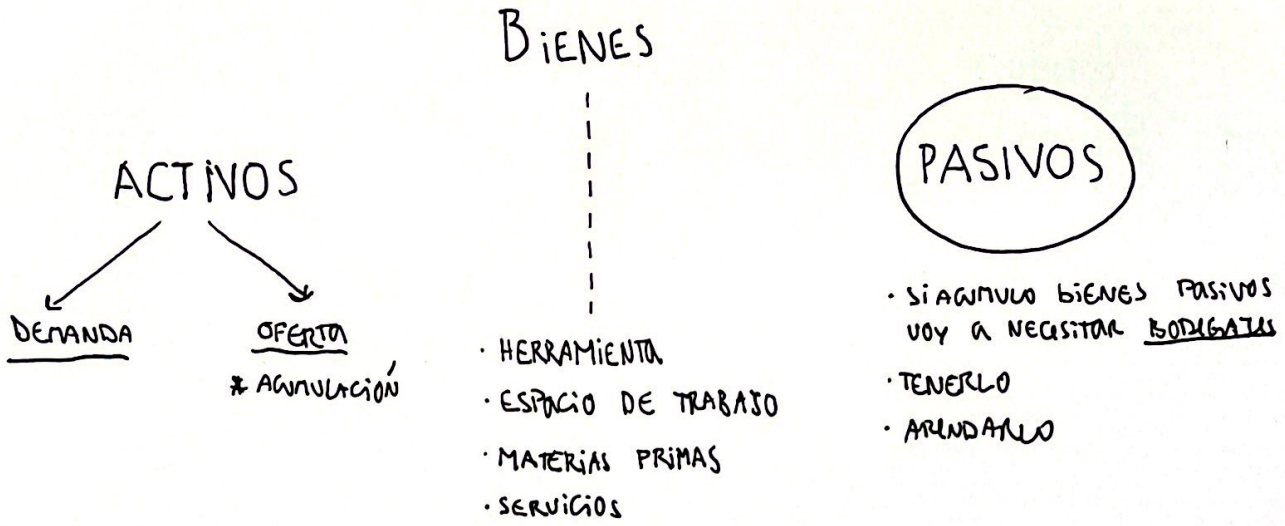 BiENES
ACTIVOS
DEMANDA
OFERTA
* ACUMULACIÓN
· HERRAMIENTA
· ESPACIO DE TRABAJO
· MATERIAS PRIMAS
· SERVICIOS
PASIVOS
· Si ACUMULO BIENES PASIVOS
VOY A NECESITAR BODEGAJES
· TENERLO
· ARENDARLO